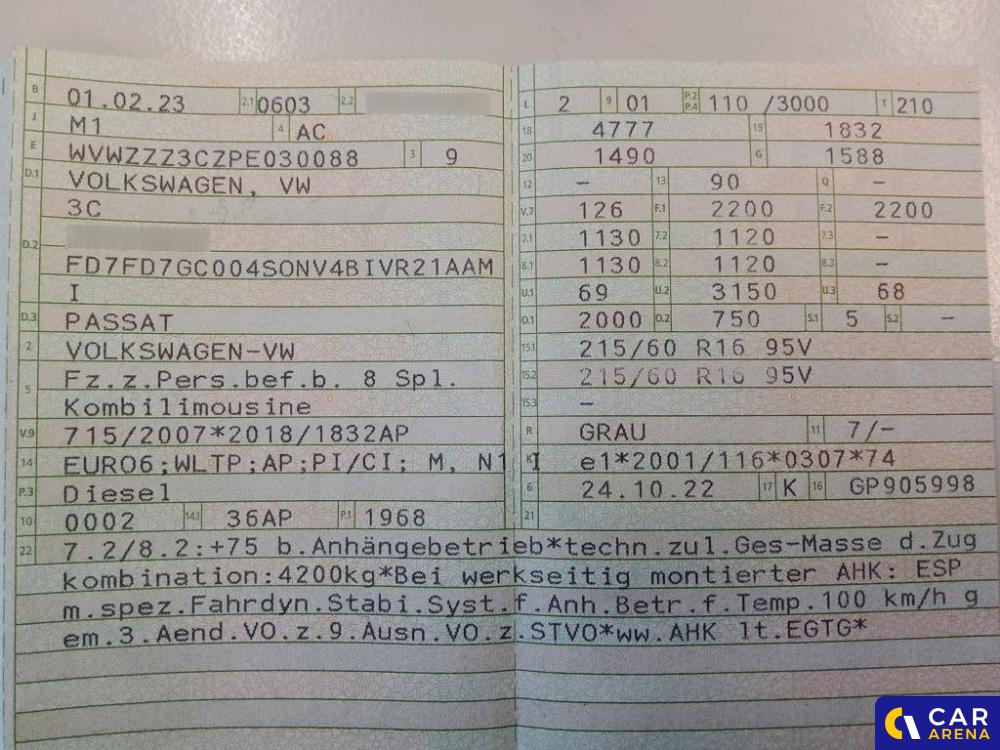 B 01.02.23 2.1 0603 2.2
J M1 4 AC
E WVWZZZ3CZPE030088 3 9
D.1 VOLKSWAGEN, VW
3C
D.2
FD7FD7GC004SONV4BIVR21AAM
I
D.3 PASSAT
2 VOLKSWAGEN-VW
5 Fz.z.Pers.bef.b. 8 Spl.
Kombilimousine
V.9 715/2007*2018/1832AP
14 EURO6;WLTP;AP;PI/CI; M, N1 I
P.3 Diesel
10 0002 14.1 36AP P.1 1968
L 2 9 01 P.2 P.4 110 /3000 T 210
18 4777 19 1832
20 1490 G 1588
12 – 13 90 Q –
V.7 126 F.1 2200 F.2 2200
7.1 1130 7.2 1120 7.3 –
8.1 1130 8.2 1120 8.3 –
U.1 69 U.2 3150 U.3 68
O.1 2000 O.2 750 S.1 5 S.2 –
15.1 215/60 R16 95V
15.2 215/60 R16 95V
15.3 –
R GRAU 11 7/–
K e1*2001/116*0307*74
6 24.10.22 17 K 16 GP905998
21
22 7.2/8.2:+75 b.Anhängebetrieb*techn.zul.Ges-Masse d.Zug
kombination:4200kg*Bei werkseitig montierter AHK: ESP
m.spez.Fahrdyn.Stabi.Syst.f.Anh.Betr.f.Temp.100 km/h g
em.3.Aend.VO.z.9.Ausn.VO.z.STVO*ww.AHK lt.EGTG*
CAR
ARENA